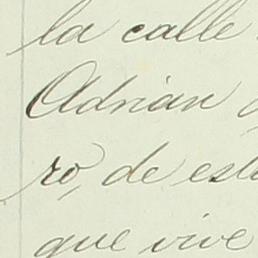 la calle
Adrián
ro, de est
que vive